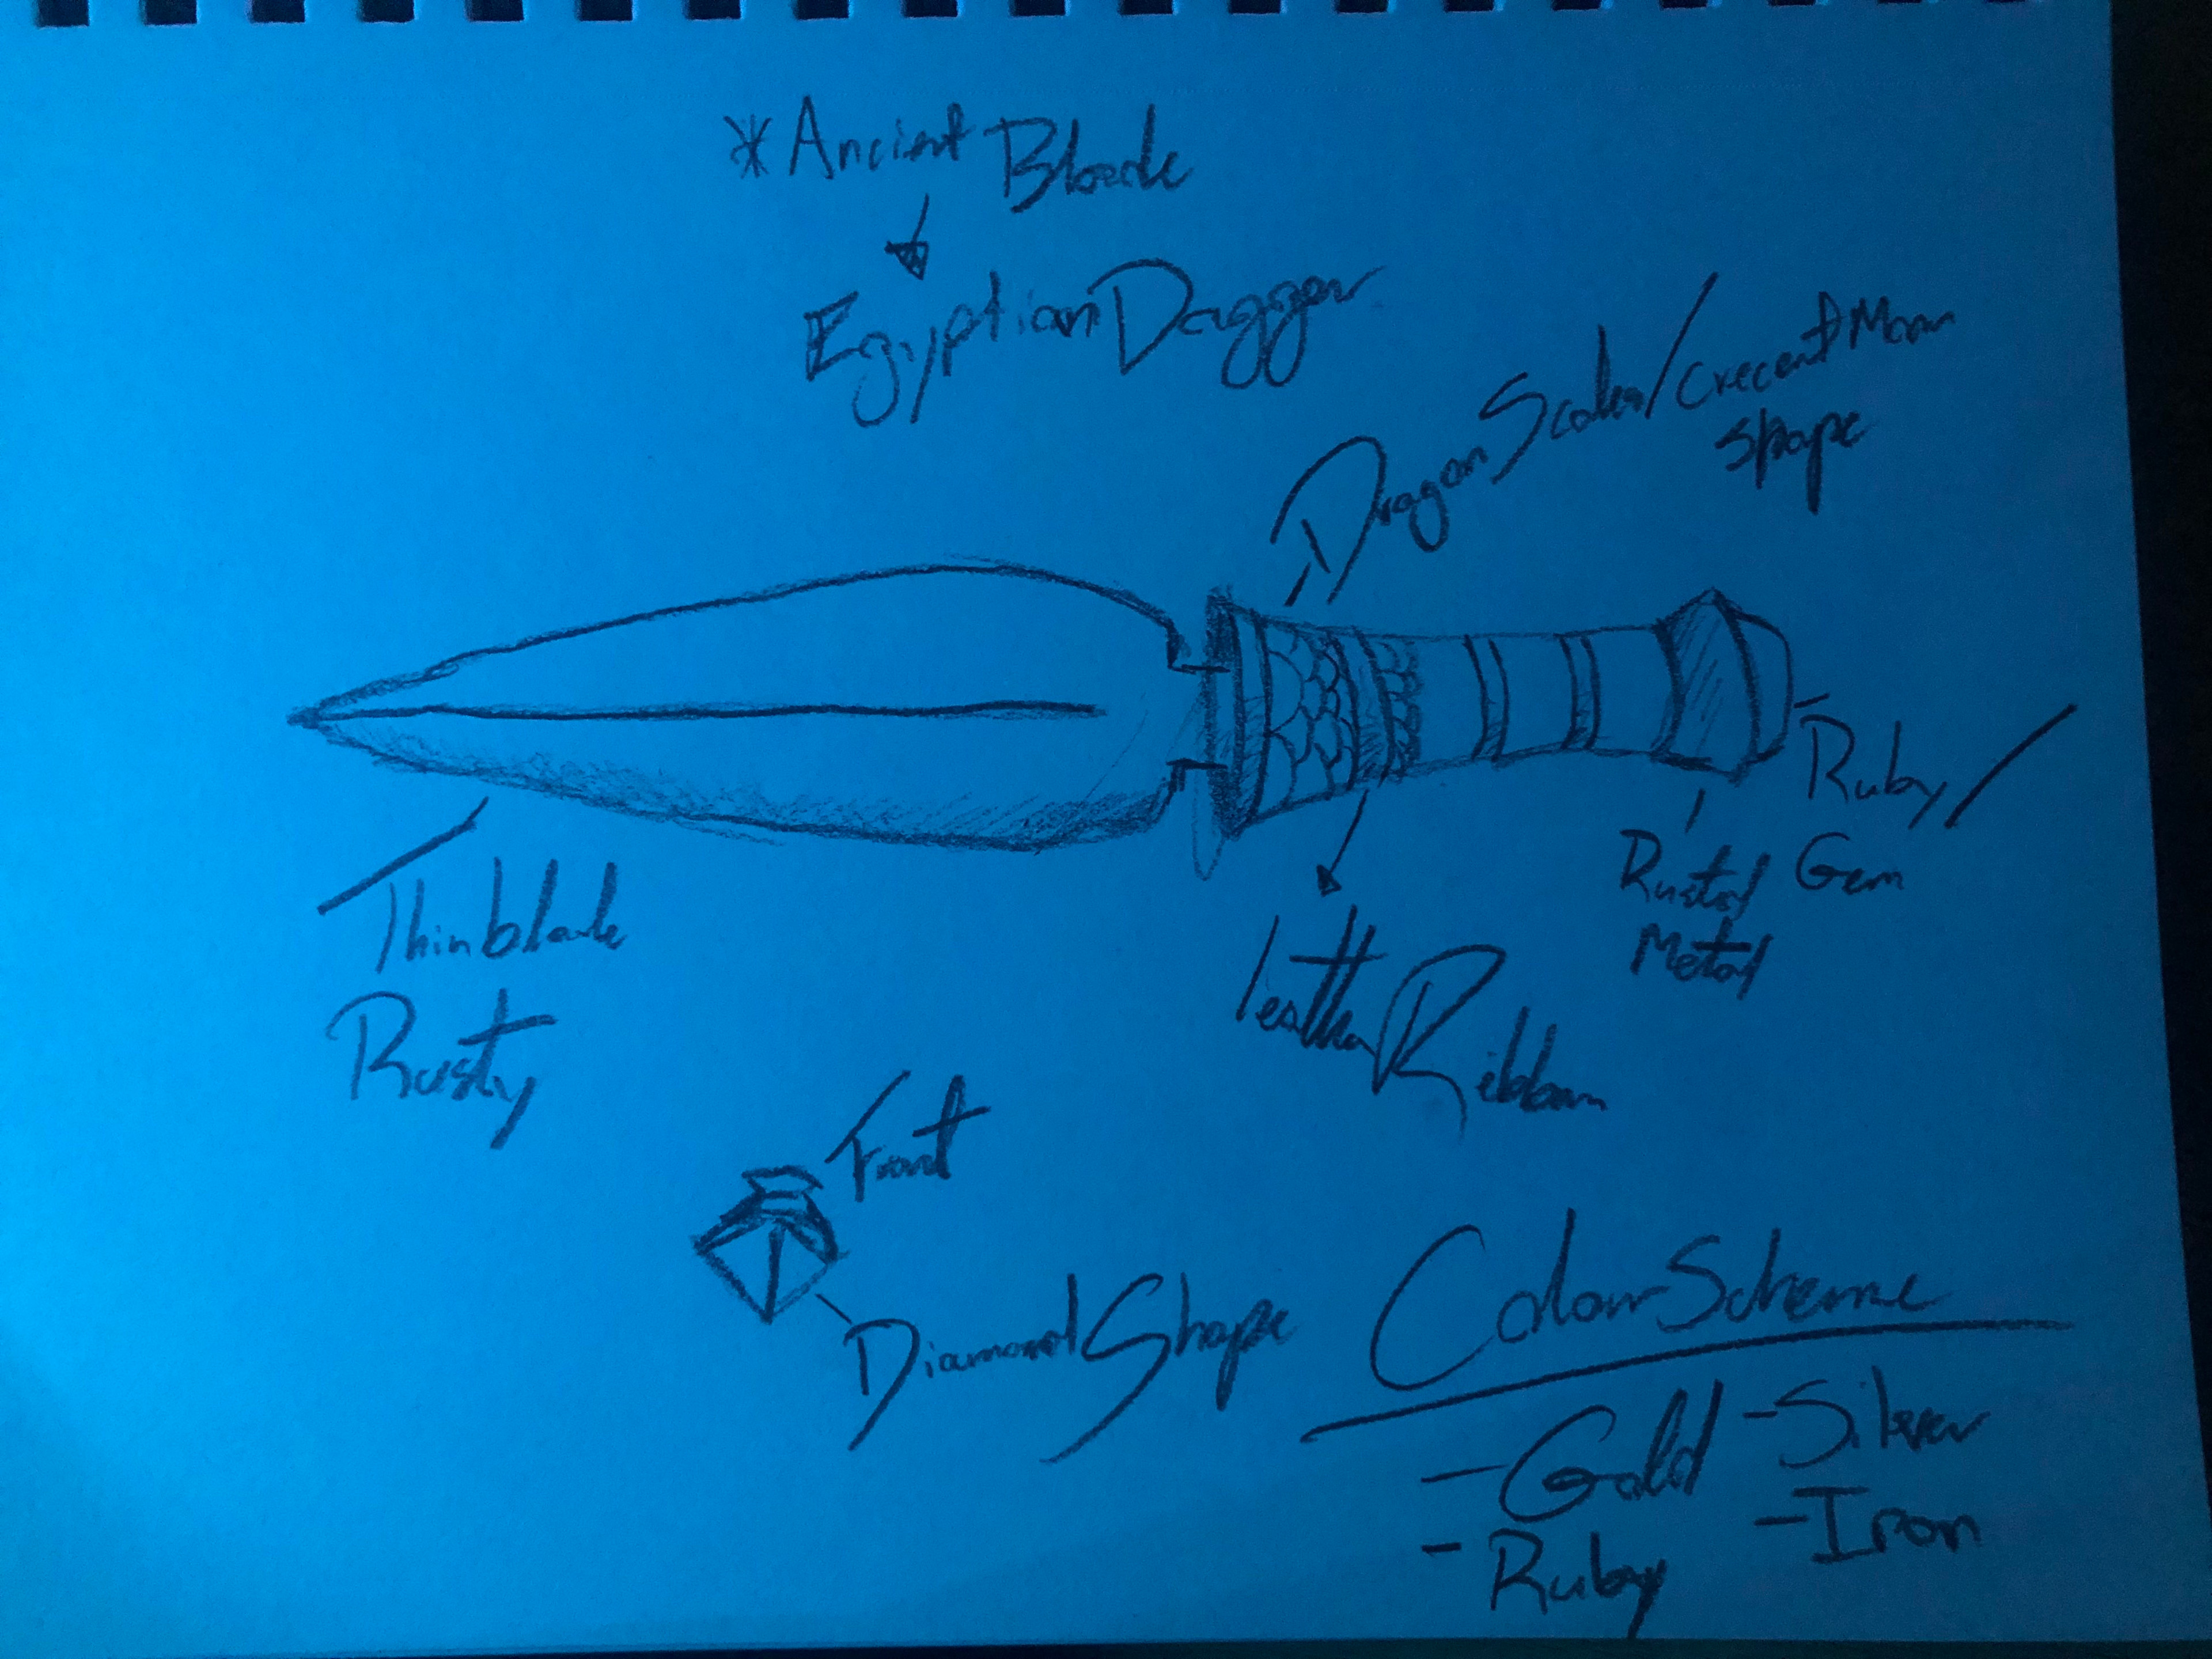 * Ancient Blade
Egyptian Dagger
Dragon Scales / Crecent Moon
Shape
Ruby /
Gem
Rusted
Metal
Leather Ribbon
Thin blade
Rusty
Front
Diamond Shape
Colour Scheme
- Gold - Silver
- Ruby - Iron